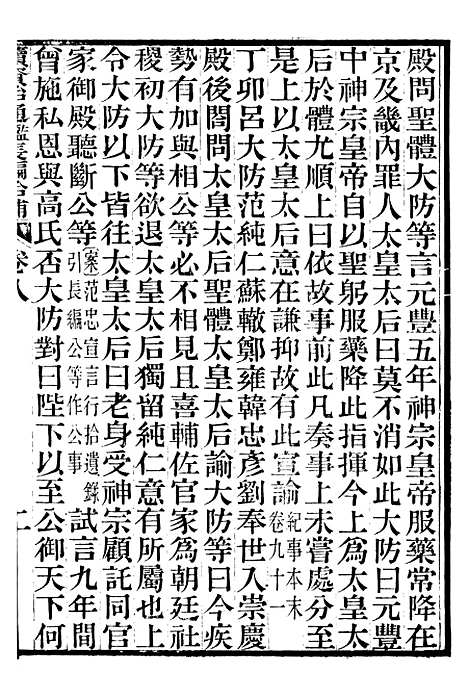 殿問聖體大防等言元豐五年神宗皇帝服藥常降在
京及畿內罪人太皇太后曰莫不消如此大防曰元豐
中神宗皇帝自以聖躬服藥降此指揮今上爲太皇太
后於體尤順上曰依故事前此凡奏事上未嘗處分至
是上以太皇太后意在謙抑故有此宣諭紀事本末卷九十一
丁卯呂大防范純仁蘇轍鄭雍韓忠彥劉奉世入崇慶
殿後閤問太皇太后聖體太皇太后諭大防等曰今疾
勢有加與相公等必不相見且喜輔佐官家爲朝廷社
稷初大防等欲退太皇太后獨留純仁意有所屬也上
令大防以下皆往太皇太后曰老身受神宗顧託同官
家御殿聽斷公等案范忠宣言行拾遺錄引長編公等作公事試言九年間
曾施私恩與高氏否大防對曰陛下以至公御天下何
續資治通鑑長編拾補 卷八 二